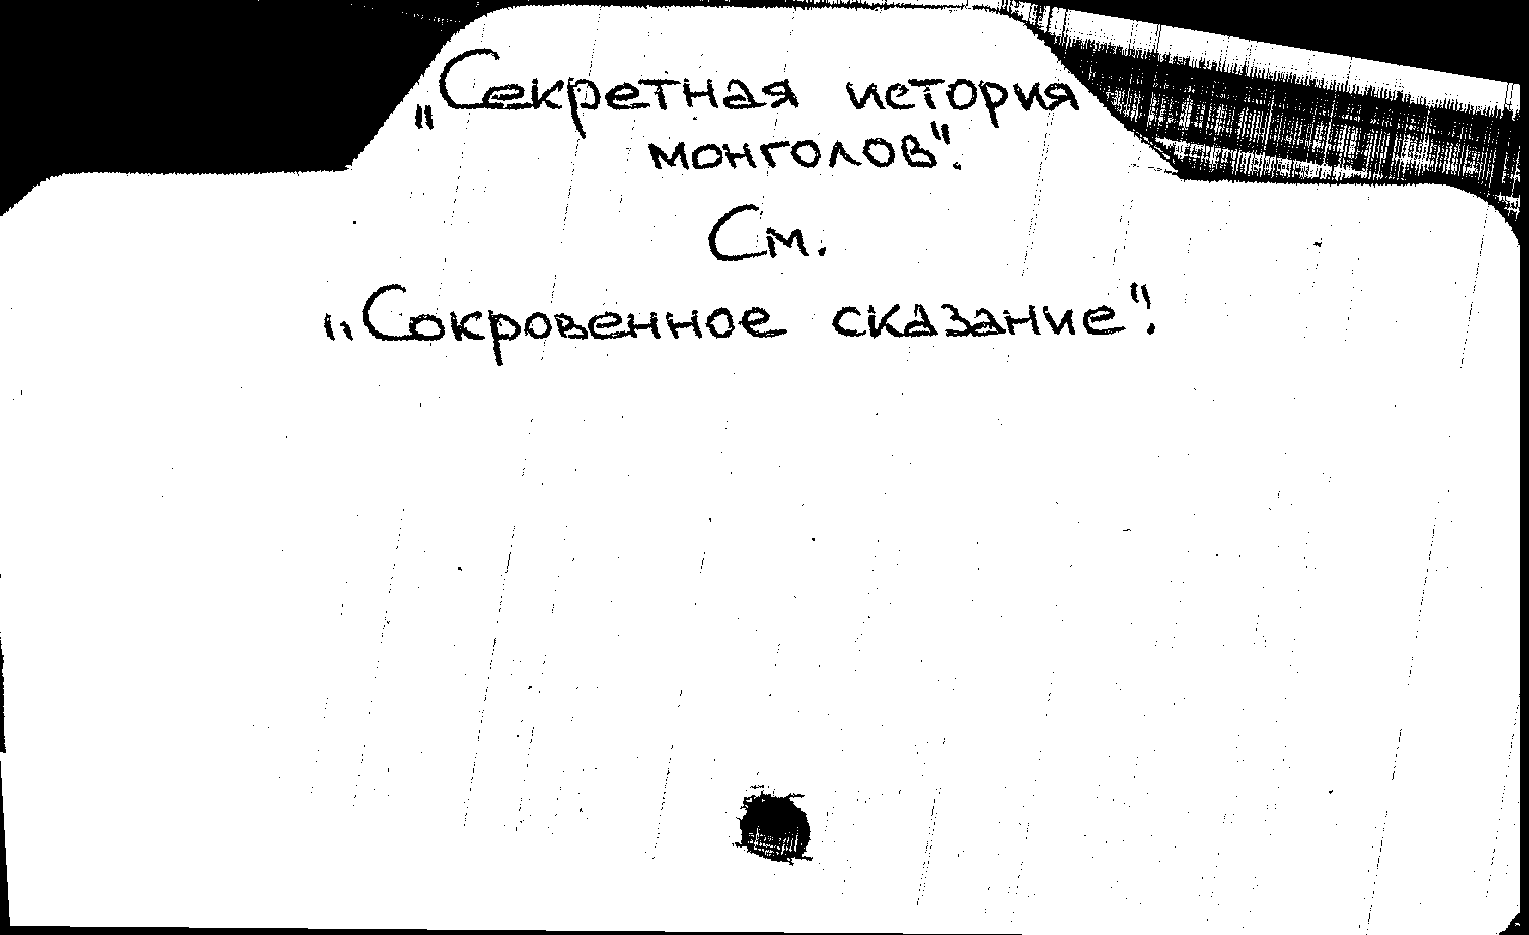 „Секретная история
монголов".
См.
„Сокровенное сказание".